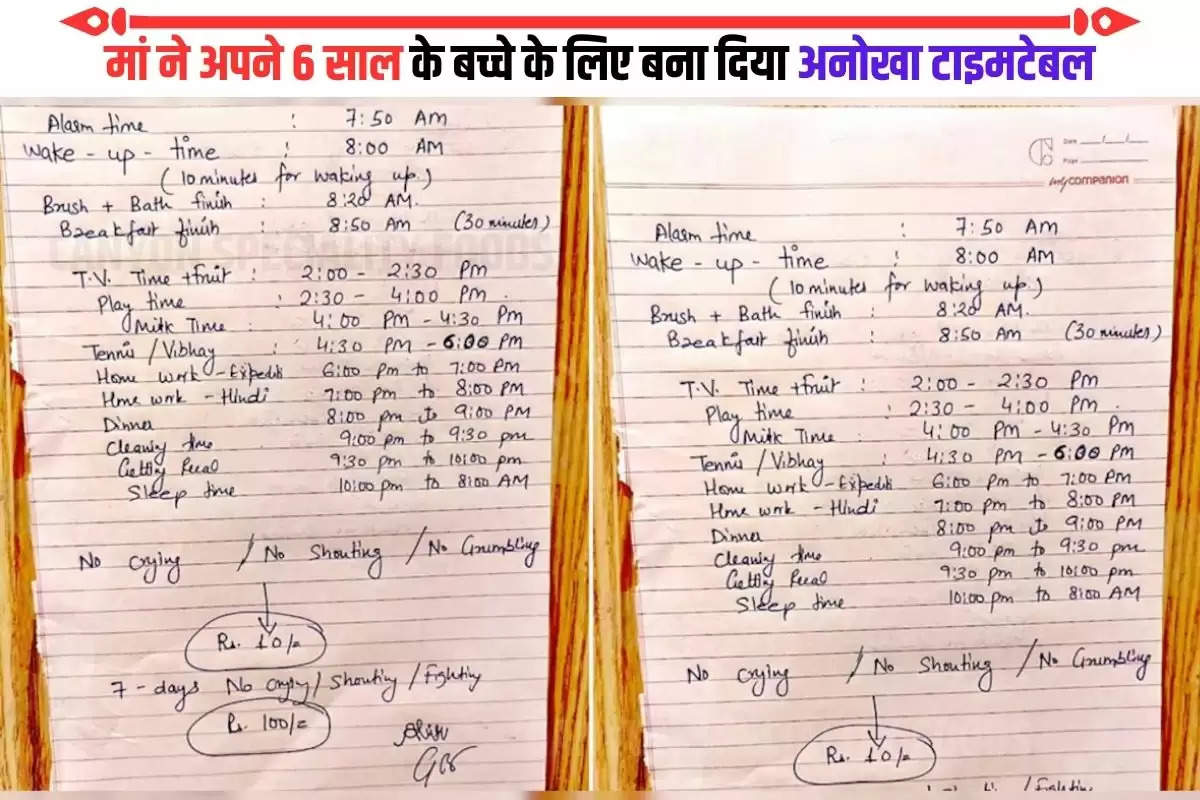 मां ने अपने 6 साल के बच्चे के लिए बना दिया अनोखा टाइमटेबल
Alarm time : 7:50 AM
Wake - up - time : 8:00 AM
(10 minutes for waking up.)
Brush + Bath finish : 8:20 AM.
Breakfast finish : 8:50 AM (30 minutes)
T.V. Time + fruit : 2:00 - 2:30 PM
Play time : 2:30 - 4:00 PM.
Milk Time : 4:00 PM - 4:30 PM
Tennis / Vibhay : 4:30 PM - 6:00 PM
Home work - 6:00 PM to 7:00 PM
Home work - Hindi 7:00 PM to 8:00 PM
Dinner 8:00 pm to 9:00 PM
Cleaning time 9:00 pm to 9:30 pm
9:30 pm to 10:00 pm
Sleep time 10:00 pm to 8:00 AM
No crying / No Shouting / No Grumbling
Rs. 10/=
7 - days No Crying / Shouting / Fighting
Rs. 100/=
Date
Page
COMPANION
Alarm time : 7:50 AM
Wake - up - time : 8:00 AM
(10 minutes for waking up.)
Brush + Bath finish : 8:20 AM.
Breakfast finish : 8:50 AM (30 minutes)
T.V. Time + fruit : 2:00 - 2:30 PM
Play time : 2:30 - 4:00 PM.
Milk Time : 4:00 PM - 4:30 PM
Tennis / Vibhay : 4:30 PM - 6:00 PM
Home work - 6:00 PM to 7:00 PM
Home work - Hindi 7:00 PM to 8:00 PM
Dinner 8:00 pm to 9:00 PM
Cleaning time 9:00 pm to 9:30 pm
9:30 pm to 10:00 pm
Sleep time 10:00 pm to 8:00 AM
No crying / No Shouting / No Grumbling
Rs. 10/=